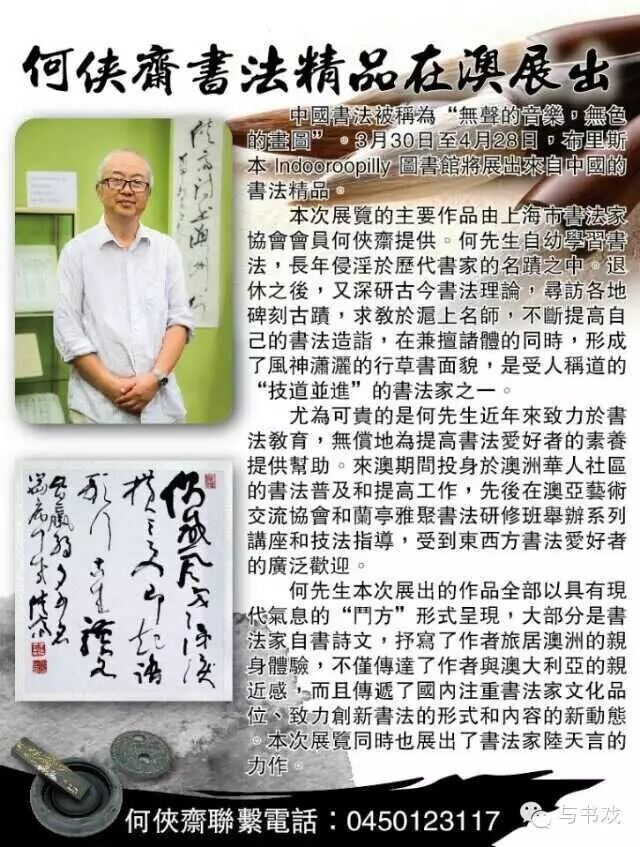 何俠齋書法精品在澳展出
中國書法被稱為“無聲的音樂，無色
的畫圖”。3月30日至4月28日，布里斯
本 Indooroopilly 圖書館將展出來自中國的
書法精品。
本次展覽的主要作品由上海市書法家
協會會員何俠齋提供。何先生自幼學習書
法，長年侵淫於歷代書家的名蹟之中。退
休之後，又深研古今書法理論，尋訪各地
碑刻古蹟，求教於滬上名師，不斷提高自
己的書法造詣，在兼擅諸體的同時，形成
了風神瀟灑的行草書面貌，是受人稱道的
“技道並進”的書法家之一。
尤為可貴的是何先生近年來致力於書
法教育，無償地為提高書法愛好者的素養
提供幫助。來澳期間投身於澳洲華人社區
的書法普及和提高工作，先後在澳亞藝術
交流協會和蘭亭雅聚書法研修班舉辦系列
講座和技法指導，受到東西方書法愛好者
的廣泛歡迎。
何先生本次展出的作品全部以具有現
代氣息的“鬥方”形式呈現，大部分是書
法家自書詩文，抒寫了作者旅居澳洲的親
身體驗，不僅傳達了作者與澳大利亞的親
近感，而且傳遞了國內注重書法家文化品
位、致力創新書法的形式和內容的新動態
。本次展覽同時也展出了書法家陸天言的
力作。
何俠齋聯繫電話：0450123117
与书戏